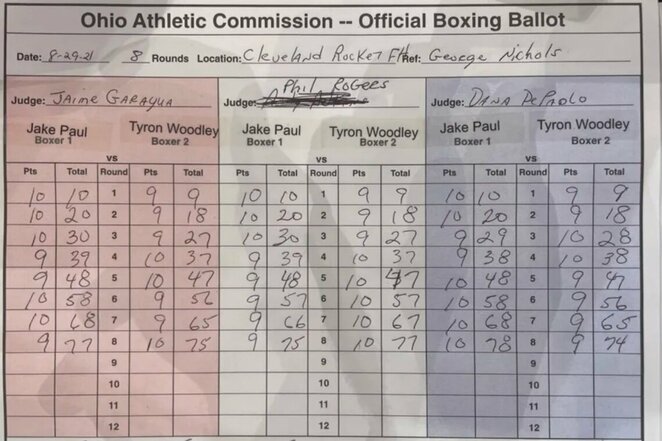 Ohio Athletic Commission -- Official Boxing Ballot
Date: 8-29-21 8 Rounds Location: Cleveland Rocket FH Ref: George Nichols
Judge: Jaime Garayua Judge: Phil Rogees Judge: Dana DePaolo
Jake Paul Tyron Woodley Jake Paul Tyron Woodley Jake Paul Tyron Woodley
Boxer 1 Boxer 2 Boxer 1 Boxer 2 Boxer 1 Boxer 2
vs vs vs
Pts Total Round Pts Total Pts Total Round Pts Total Pts Total Round Pts Total
10 10 1 9 9 10 10 1 9 9 10 10 1 9 9
10 20 2 9 18 10 20 2 9 18 10 20 2 9 18
10 30 3 9 27 10 30 3 9 27 9 29 3 10 28
9 39 4 10 37 9 39 4 10 37 9 38 4 10 38
9 48 5 10 47 9 48 5 10 47 10 48 5 9 47
10 58 6 9 56 9 57 6 10 57 10 58 6 9 56
10 68 7 9 65 9 66 7 10 67 10 68 7 9 65
9 77 8 10 75 9 75 8 10 77 10 78 8 9 74
9 9 9
10 10 10
11 11 11
12 12 12